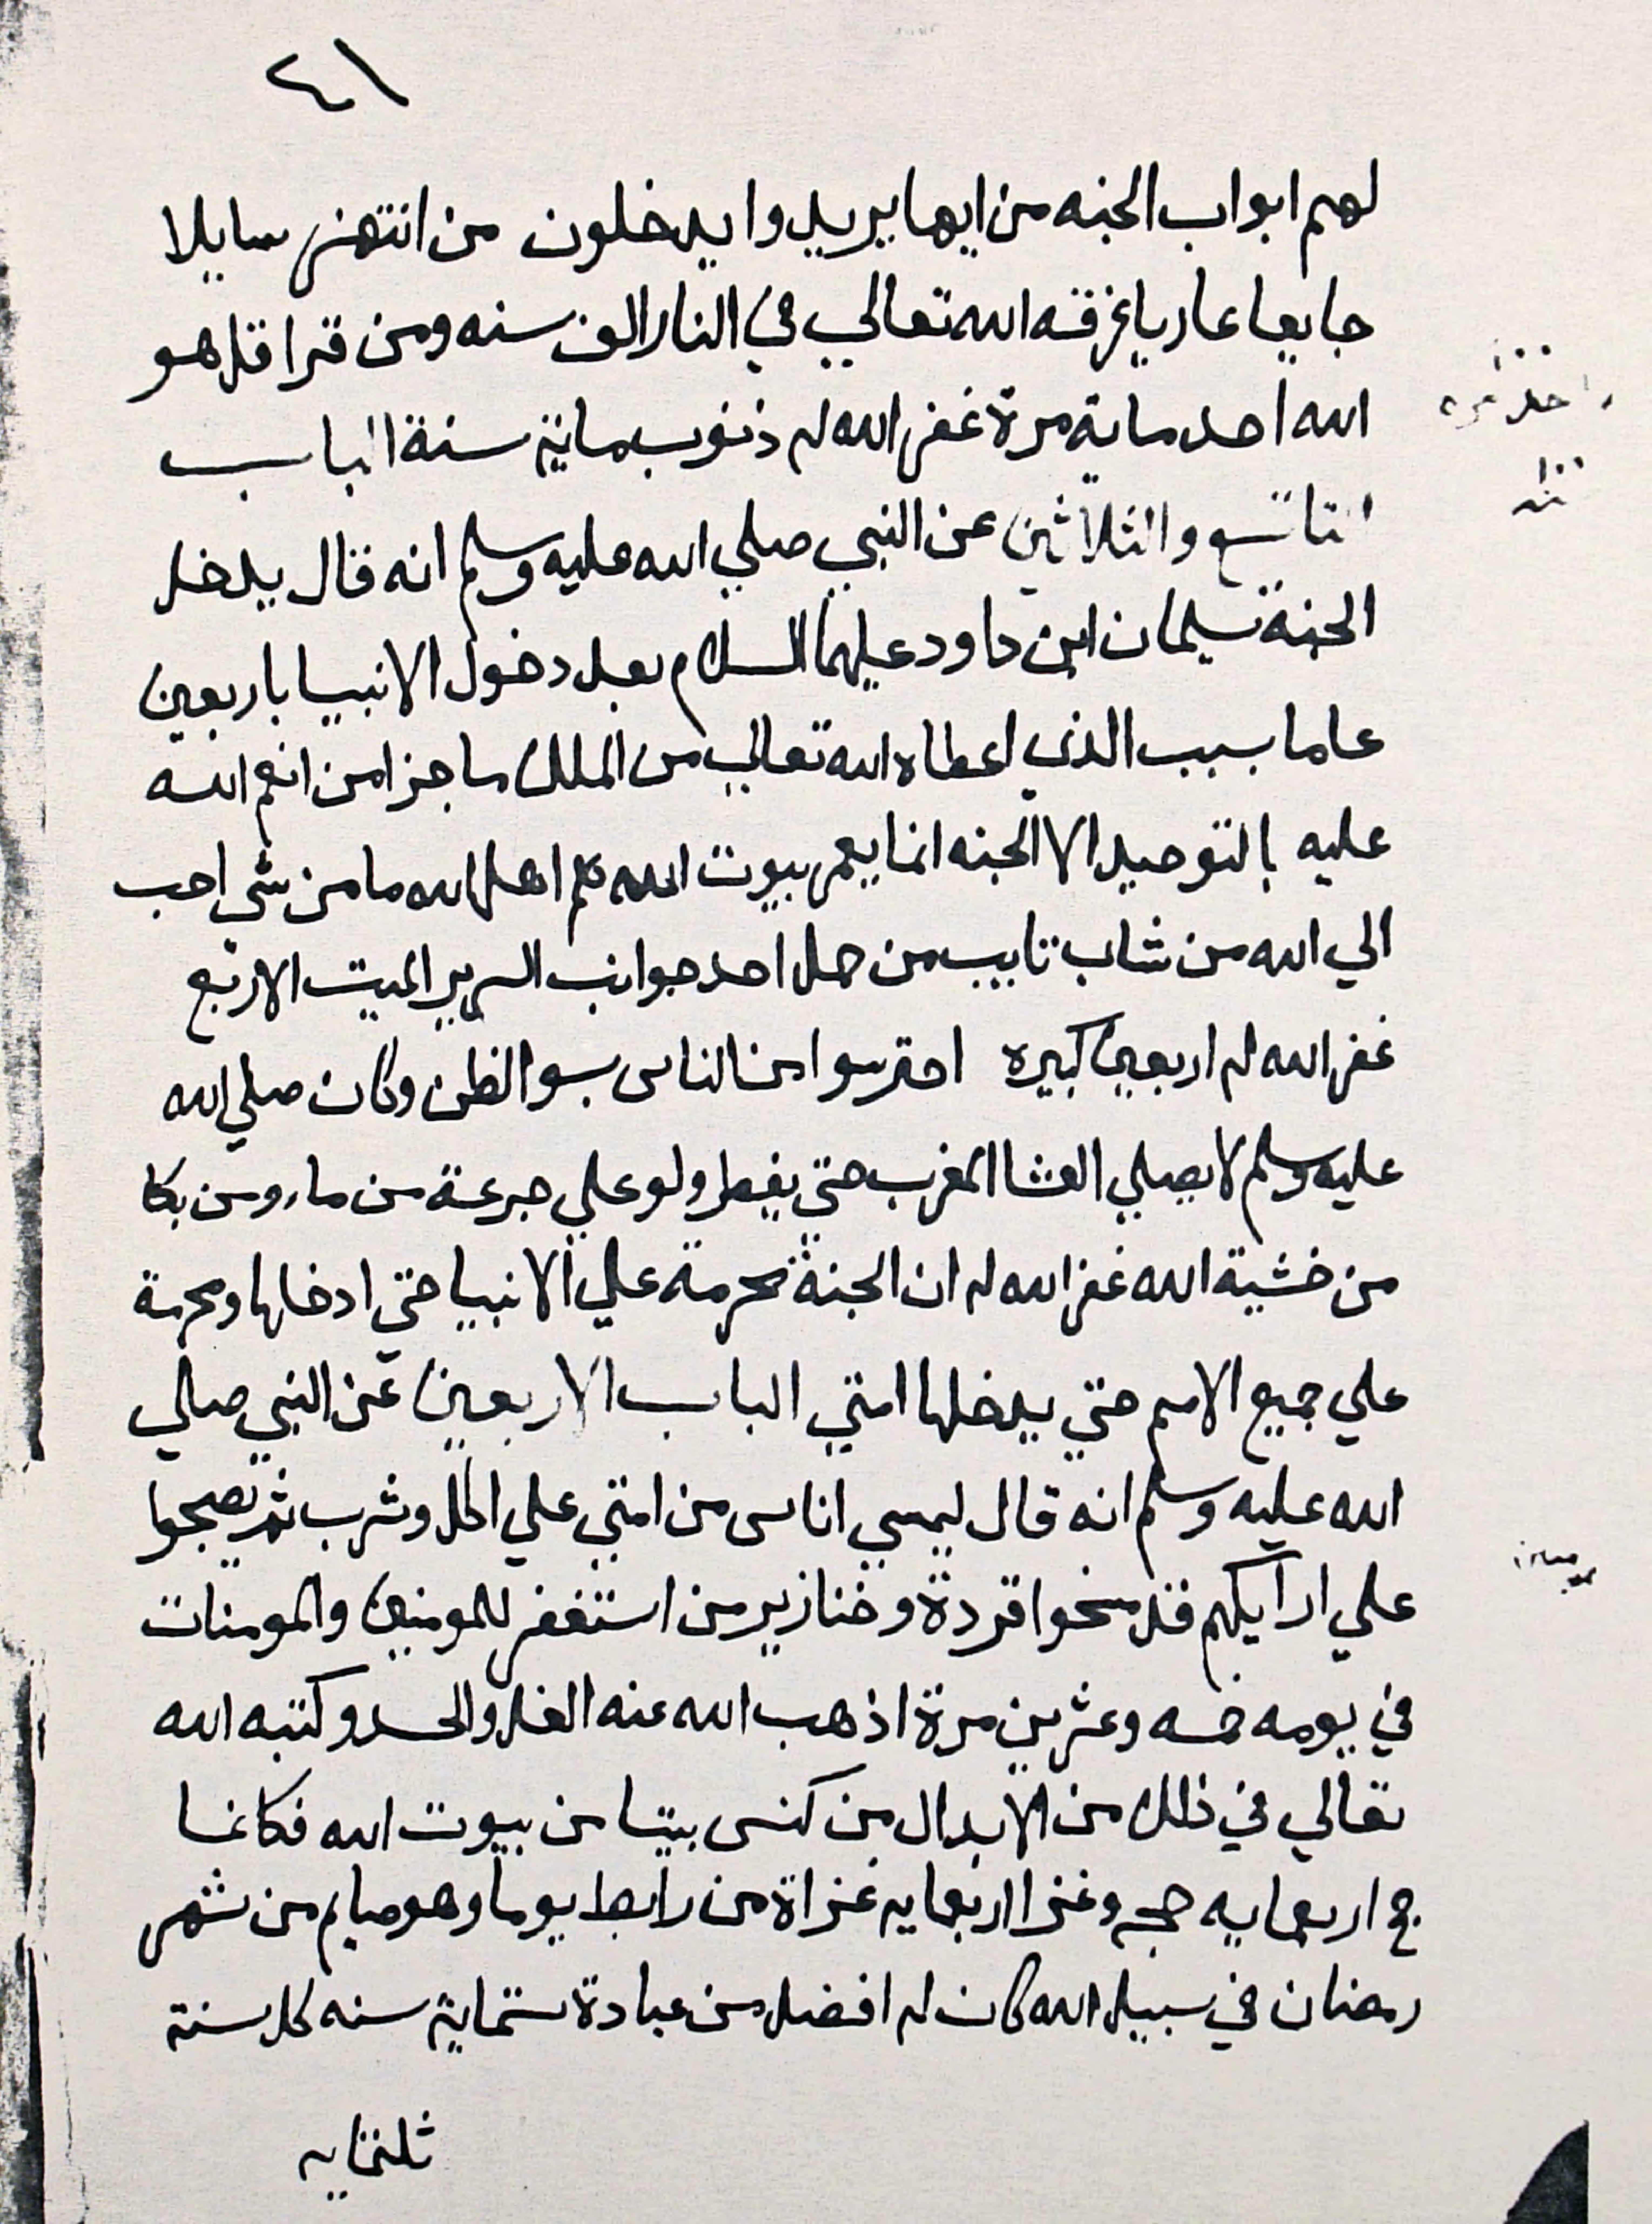 ٤١
لهم ابواب الجنه من ايها يريدوا يدخلون من انتهر سايلا
جايعا عاريا غرقه الله تعالي في النار الف سنه ومن قرا قل هو
الله احد ماية مرة غفر الله له ذنوب ماية سنة الباب
التاسع والثلاثين عن النبي صلي الله عليه وسلم انه قال يدخل
الجنة سليمان ابن داود عليهما السلام بعد دخول الانبيا باربعين
عاما بسبب الذي اعطاه الله تعالي من الملك ما جزا من انعم الله
عليه بالتوحيد الا الجنه انما يعمر بيوت الله هم اهل الله ما من شي احب
الي الله من شاب تايب من حمل احد جوانب السرير الميت الاربع
غفر الله له اربعين كبيره احترسوا من الناس بسو الظن وكان صلي الله
عليه وسلم لا يصلي العشا المغرب حتي يفطر ولو علي جرعة من ما ومن بكا
من خشية الله غفر الله له ان الجنة محرمة علي الانبيا حتي ادخلها ومحرمة
علي جميع الامم حتي يدخلها امتي الباب الاربعين عن النبي صلي
الله عليه وسلم انه قال ليمسي اناس من امتي علي اكل وشرب ثم يصبحوا
علي ارايكهم قد مسخوا قردة وخنازير من استغفر للمومنين والمومنات
في يومه خمسه وعشرين مرة اذهب الله عنه الغل والحسد وكتبه الله
تعالي في ذلك من الابدال من كنس بيتا من بيوت الله فكانما
حج اربعمايه حجه وغزا اربعمايه غزاة من رابط يوما وهو صايم من شهر
رمضان في سبيل الله كان له افضل من عبادة ستماية سنه كل سنة
ثلثمايه